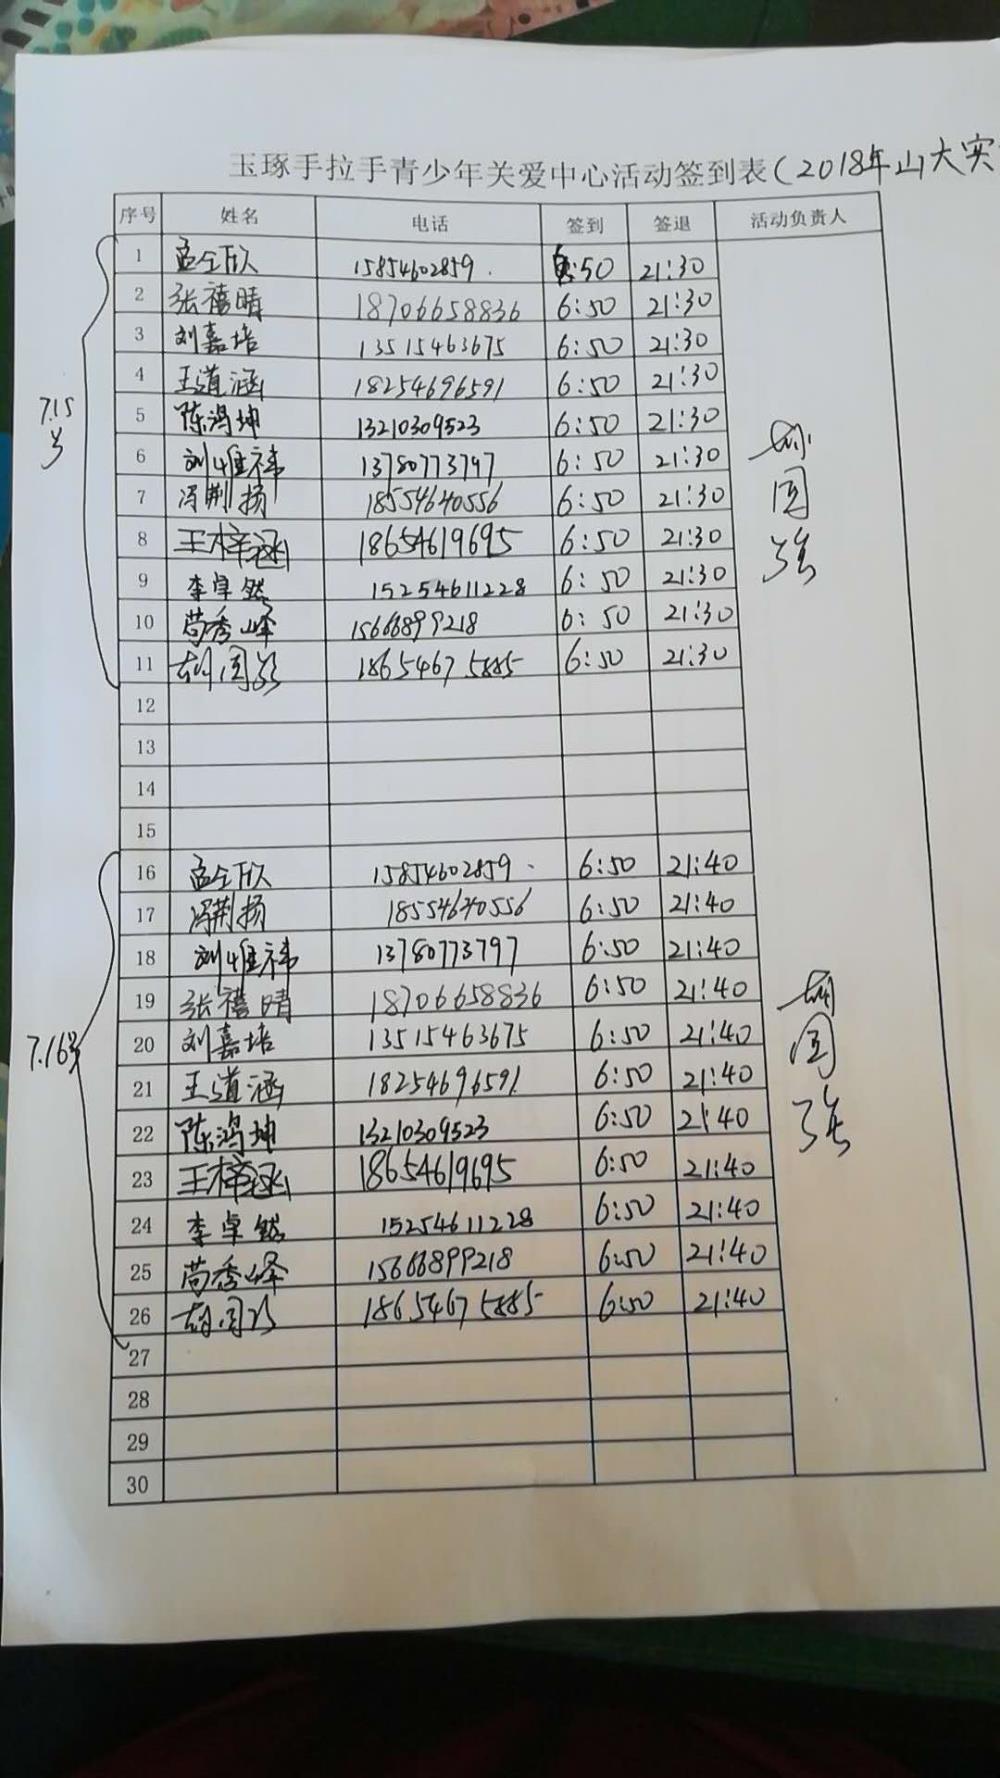 玉琢手拉手青少年关爱中心活动签到表(2018年山大实
序号 姓名 电话 签到 签退 活动负责人
7.15号
1 孟全欣 15854602859 6:50 21:30
2 张禧晴 18706658836 6:50 21:30
3 刘嘉培 13515463675 6:50 21:30
4 王道涵 18254696591 6:50 21:30
5 陈鸿坤 13210309523 6:50 21:30
6 刘雅祎 13780773797 6:50 21:30
7 冯荆扬 18554640556 6:50 21:30
8 王梓涵 18654619695 6:50 21:30
9 李卓然 15254611228 6:50 21:30
10 苟秀峰 15666899218 6:50 21:30
11 胡国强 18654675885 6:50 21:30
胡国强
12
13
14
15
7.16号
16 孟全欣 15854602859 6:50 21:40
17 冯荆扬 18554640556 6:50 21:40
18 刘雅祎 13780773797 6:50 21:40
19 张禧晴 18706658836 6:50 21:40
20 刘嘉培 13515463675 6:50 21:40
21 王道涵 18254696591 6:50 21:40
22 陈鸿坤 13210309523 6:50 21:40
23 王梓涵 18654619695 6:50 21:40
24 李卓然 15254611228 6:50 21:40
25 苟秀峰 15666899218 6:50 21:40
26 胡国强 18654675885 6:50 21:40
胡国强
27
28
29
30